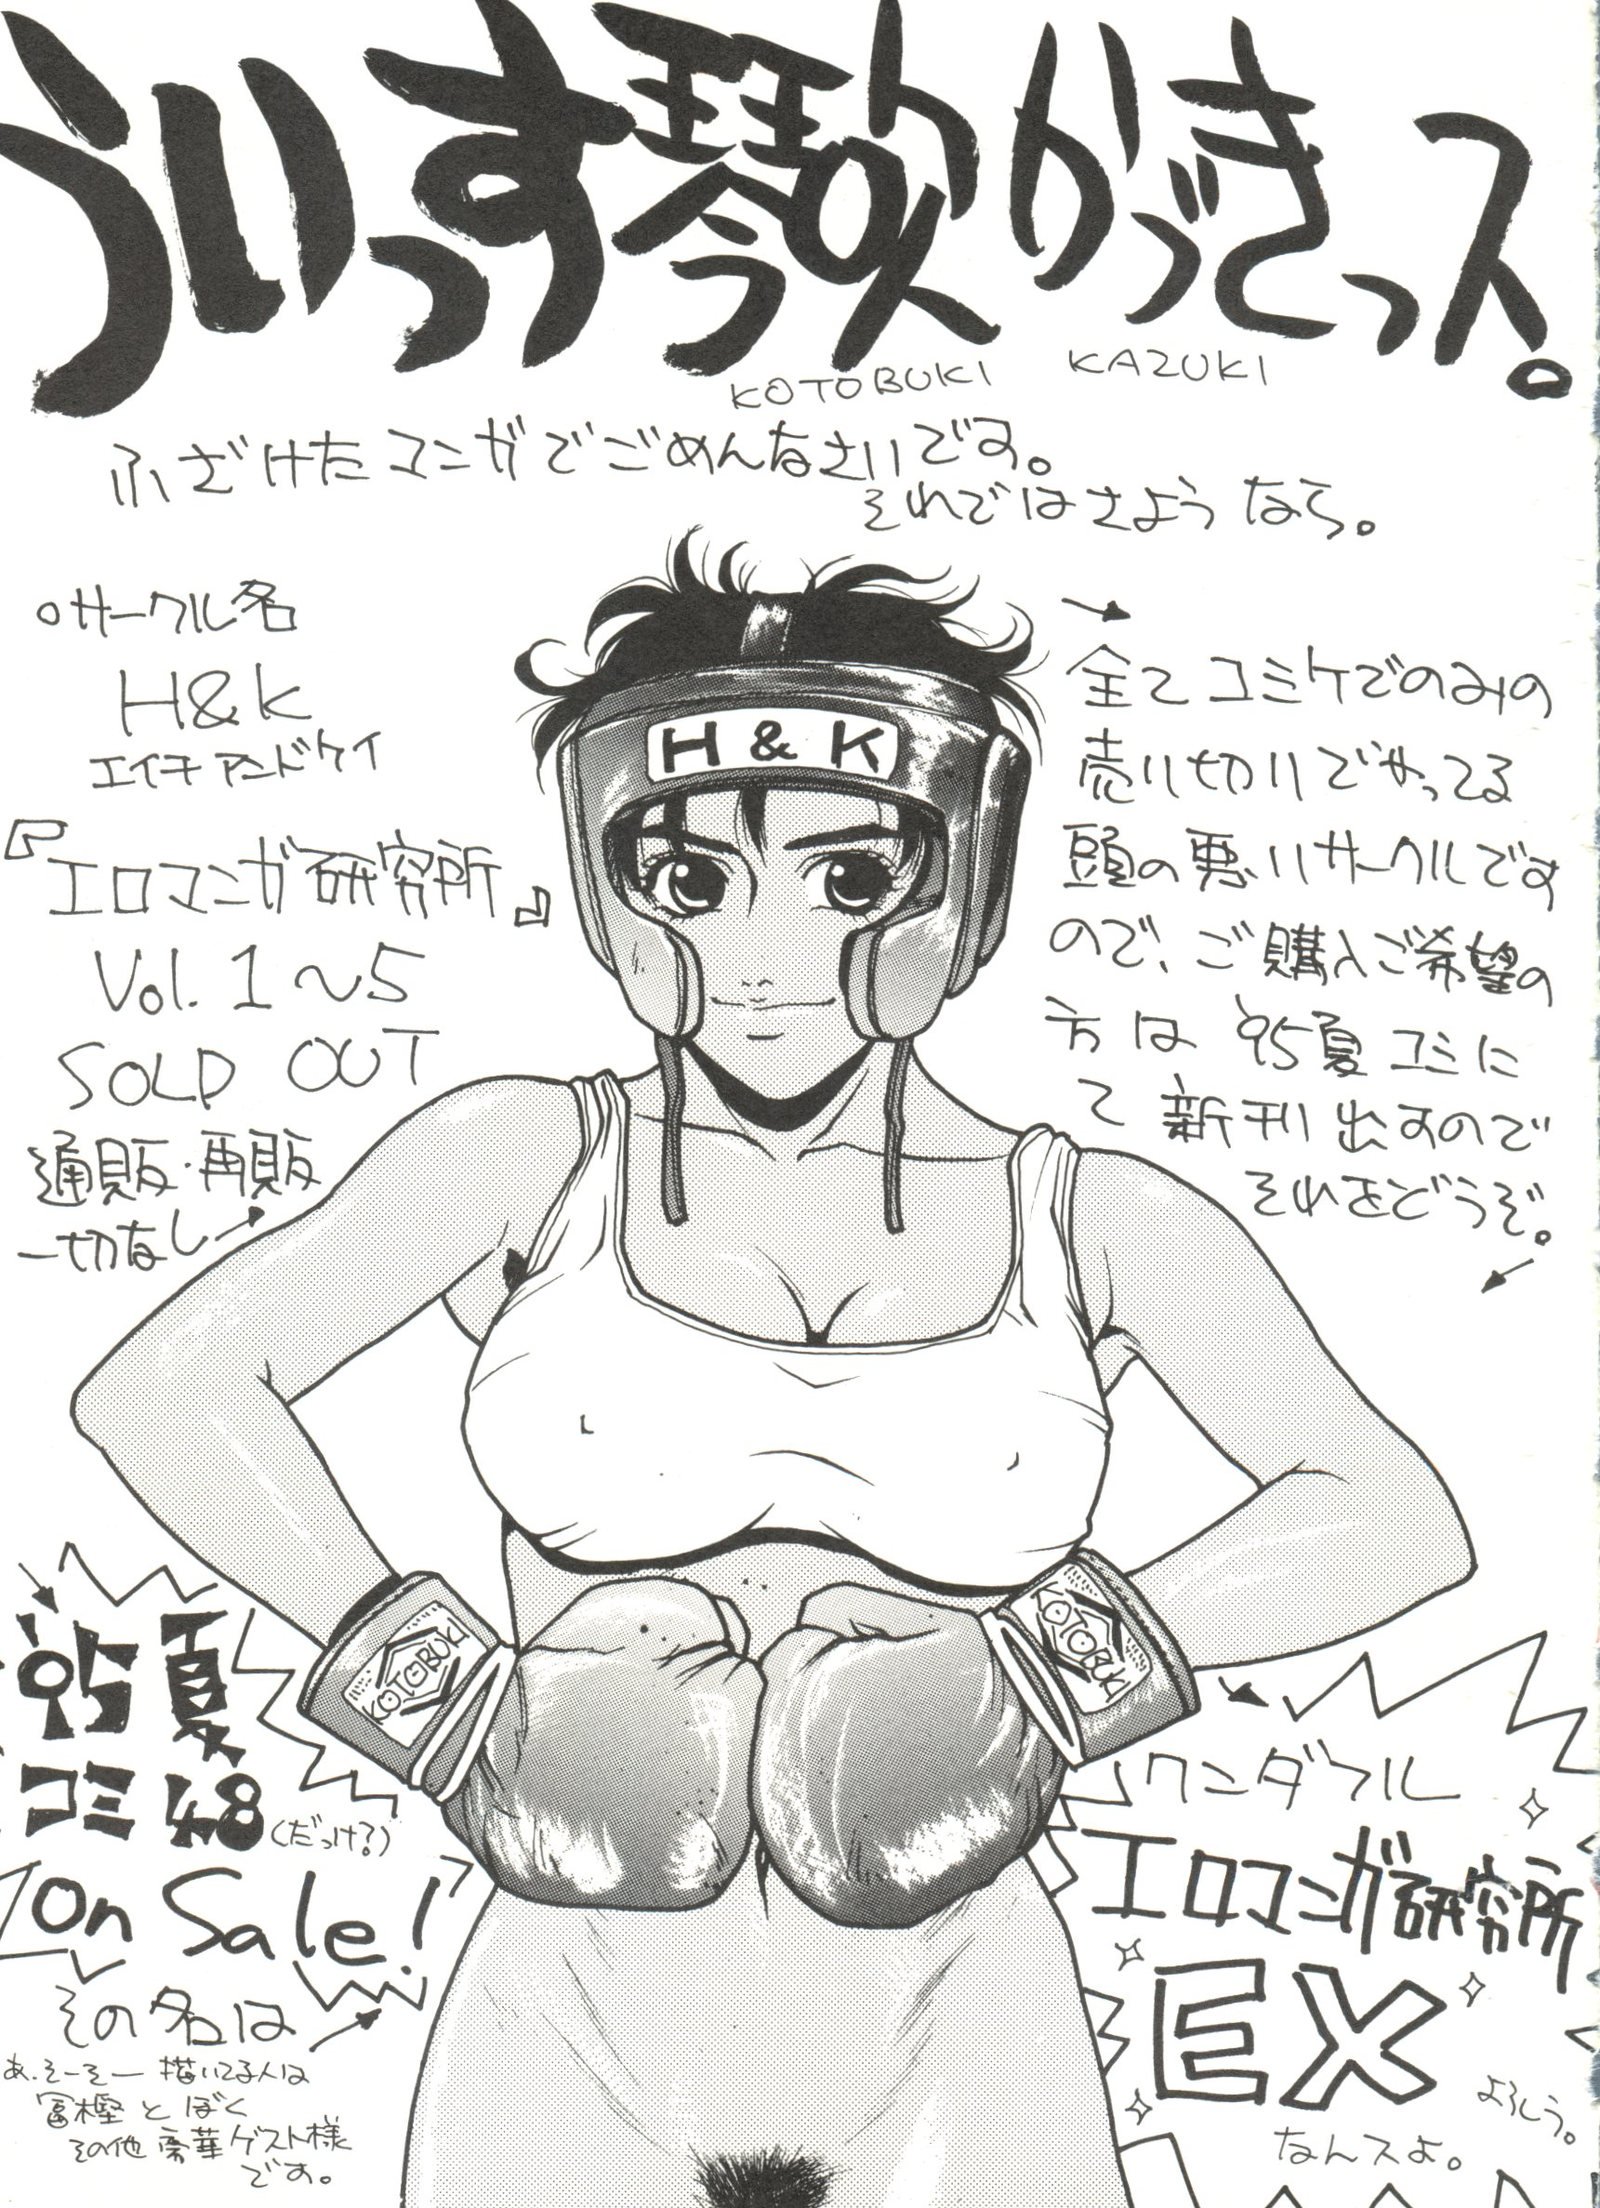 ういっす琴吹かづきっス。
KOTOBUKI KAZUKI
ふざけたマンガでごめんなさいです。
それではさようなら。
○サークル名
H&K
エイチアンドケイ
『エロマンガ研究所』
Vol.1〜5
SOLD OUT
通販・再販
一切なし→
全てコミケでのみの
売り切りでやってる
頭の悪いサークルです
ので、ご購入ご希望の
方は'95夏コミに
て新刊出すので
それをどうぞ。
H & K
KOTOBUKI
KOTOBUKI
'95夏
コミ48(だっけ?)
On Sale!
その名は
あ、そーそー描いてる人は
冨樫とぼく
その他豪華ゲスト様
です。
ワンダフル
エロマンガ研究所
EX
なんスよ。
よろしう。